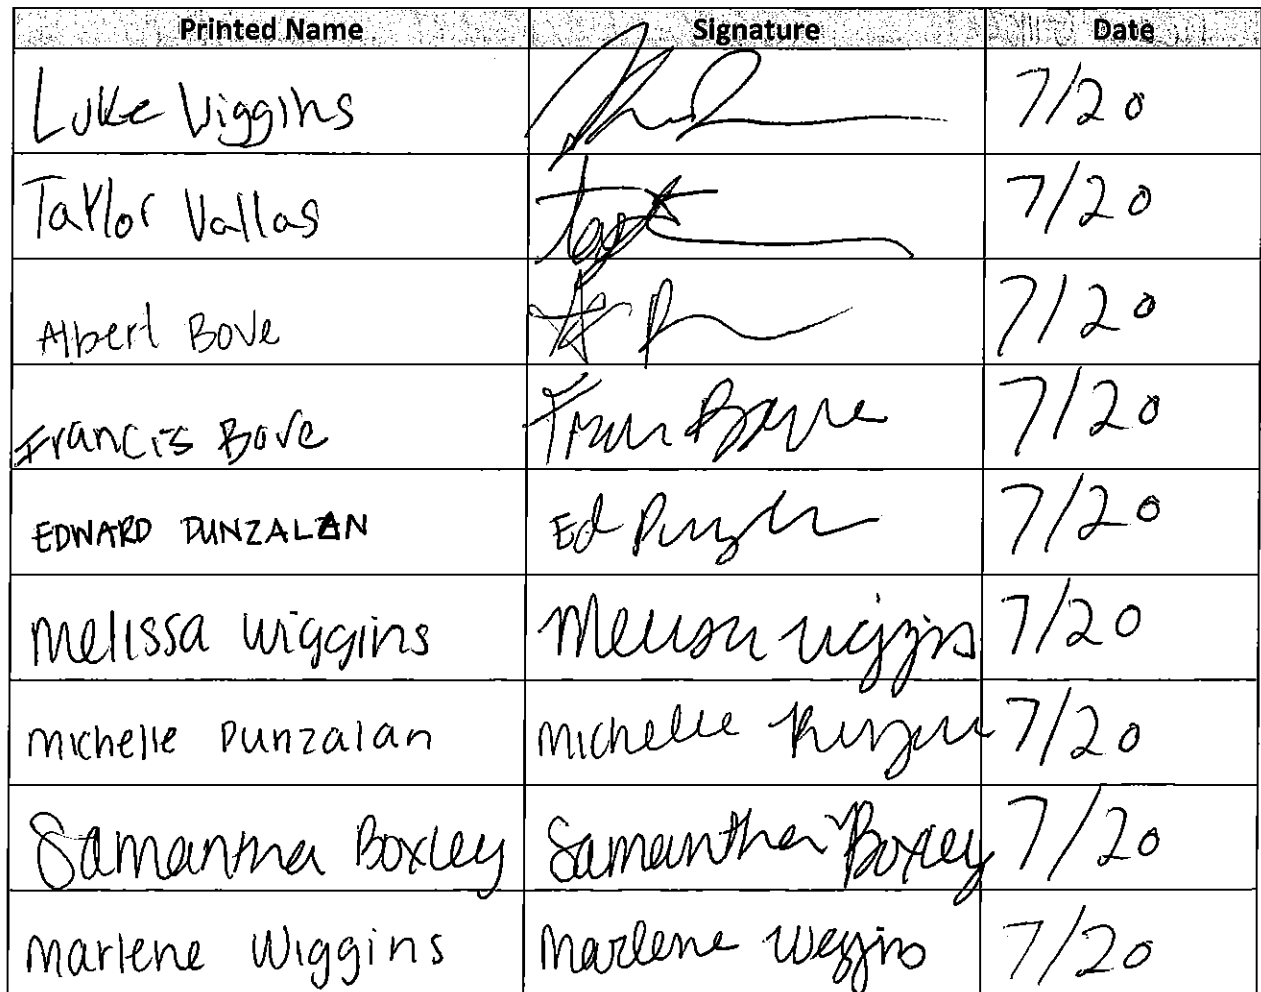 Printed Name Signature Date
Luke Wiggins 7/20
Taylor Vallas 7/20
Albert Bove 7/20
Francis Bove Fran Bove 7/20
EDWARD PUNZALAN Ed 7/20
Melissa Wiggins Melissa Wiggins 7/20
Michelle Punzalan Michelle 7/20
Samantha Boxley Samantha Boxley 7/20
Marlene Wiggins Marlene Wiggins 7/20